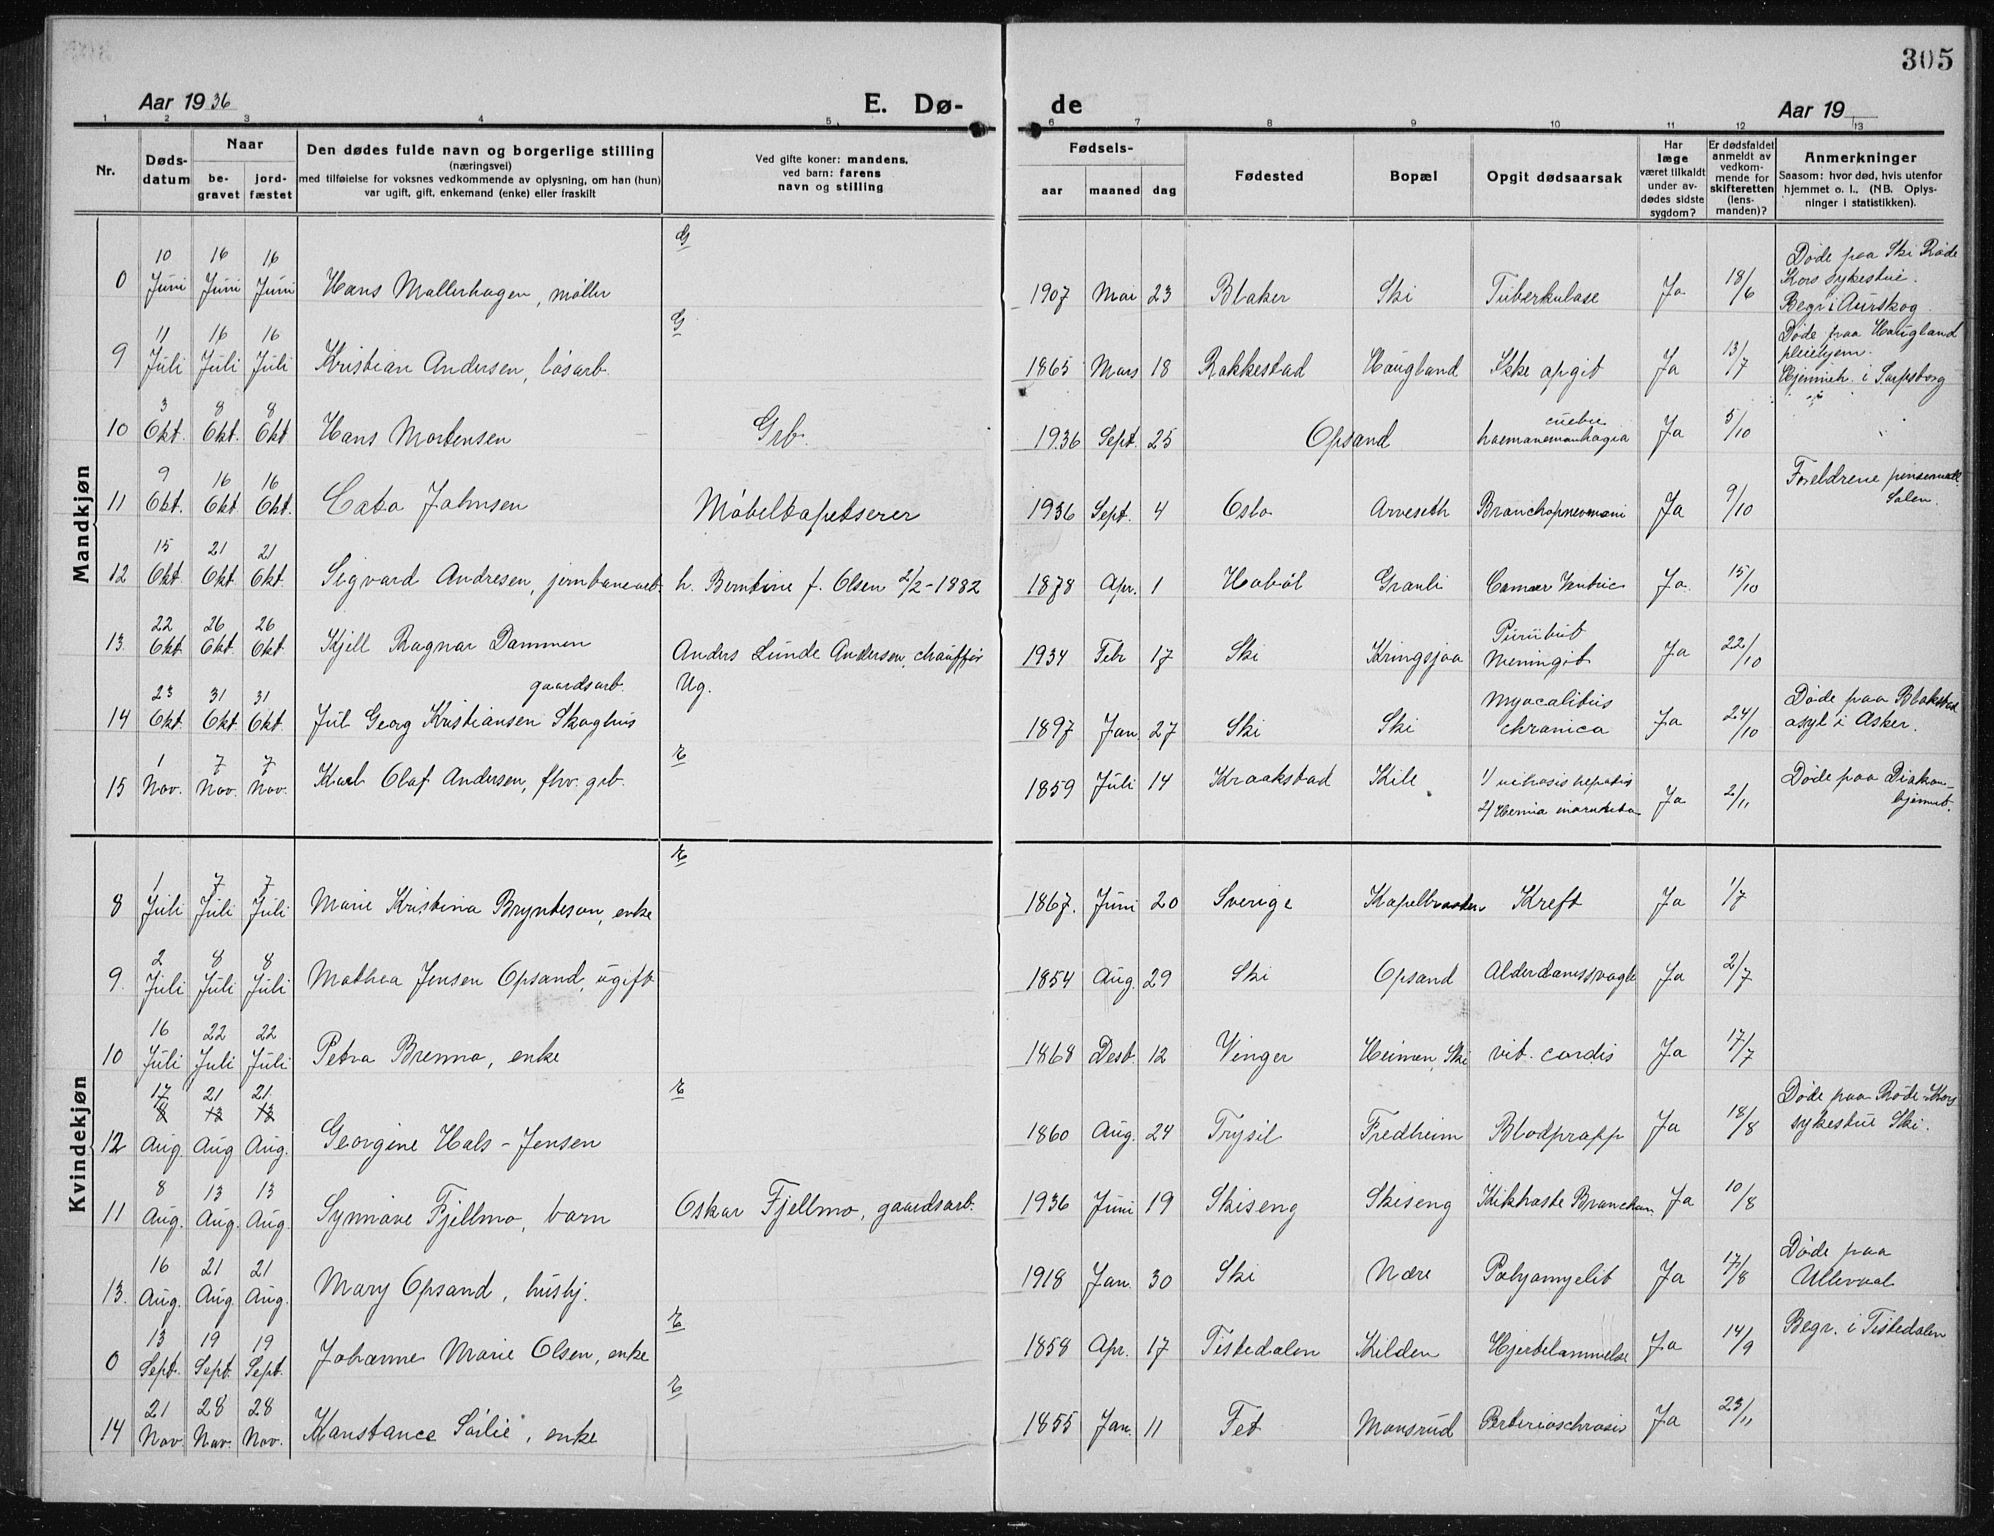 305
Aar 1936 E. Dø- de Aar 19
1 2 3 4 5 6 7 8 9 10 11 12 13
Nr. Døds-datum Naar be-gravet jord-fæstet Den dødes fulde navn og borgerlige stilling (næringsvei) med tilføielse for voksnes vedkommende av oplysning, om han (hun) var ugift, gift, enkemand (enke) eller fraskilt Ved gifte koner: mandens, ved barn: farens navn og stilling Fødsels- aar maaned dag Fødested Bopæl Opgit dødsaarsak Har læge været tilkaldt under av-dødes sidste sygdom? Er dødsfaldet anmeldt av vedkom-mende for skifteretten (lens-manden)? Anmerkninger Saasom: hvor død, hvis utenfor hjemmet o. l., (NB. Oplys-ninger i statistikken).
Mandkjøn
0 10 Juni 16 Juni 16 Juni Hans Mollerhagen, møller G 1907 Mai 23 Blaker Ski Tuberkulose Ja 18/6 Døde paa Ski Røde Kors sykestue. Begr. i Aurskog
9 11 Juli 16 Juli 16 Juli Kristian Andersen, løsarb. G 1865 Mars 18 Rakkestad Haugland Ikke opgit Ja 13/7 Døde paa Haugland pleiehjem. Hjemmeh. i Sarpsborg
10 3 Okt. 8 Okt. 8 Okt Hans Mortensen Grb. 1936 Sept. 25 Opsand Ja 5/10
11 9 Okt. 16 Okt. 16 Okt. Cato Johnsen Møbeltapetserer 1936 Sept. 4 Oslo Arveseth Bronchopnevmoni Ja 9/10 Foreldrene
12 15 Okt. 21 Okt. 21 Okt. Sigvard Andresen, jernbanearb. h. Berntine f. Olsen 2/2-1882 1878 Apr. 1 Hobøl Granli Ja 15/10
13. 22 Okt. 26 Okt. 26 Okt. Kjell Ragnar Dammen Anders Lunde Andersen, chauffør 1934 Febr 17 Ski Kringsjaa Meningit Ja 22/10
14 23 Okt 31 Okt 31 Okt. Jul Georg Kristiansen Skoghus gaardsarb. Ug. 1897 Jan. 27 Ski Ski chronica Ja 24/10 Døde paa Blakstad asyl i Asker.
15 1 Nov. 7 Nov. 7 Nov. Karl Olaf Andersen, fhv. grb. E 1859 Juli 14 Kraakstad Kile 1/ hepatis 2/ Hernia Ja 2/11 Døde paa Diakon-hjemmet.
Kvindekjøn
8 1 Juli 7 Juli 7 Juli Marie Kristina Brynteson, enke E 1867. Juni 20 Sverige Kreft Ja 1/7
9. 2 Juli 8 Juli 8 Juli Mathea Jensen Opsand, ugift 1854 Aug. 29 Ski Opsand Ja 2/7
10 16 Juli 22 Juli 22 Juli Petra Brenmo, enke 1868 Desb. 12 Vinger Heimen, Ski vit. cordis Ja 17/7
12 17 Aug. 21 Aug 21 Aug. Georgine Hals-Jensen E 1860 Aug. 24 Trysil Fredheim Blodpropp Ja 18/8 Døde paa Røde Kors sykestue Ski.
11 8 Aug. 13 Aug. 13 Aug. Synnøve Fjellmo, barn Oskar Fjellmo, gaardsarb. 1936 Juni 19 Skiseng Skiseng Kikhoste Ja 10/8
13. 16 Aug. 21 Aug. 21 Aug. Mary Opsand, hushj. 1918 Jan. 30 Ski Nøre Ja 17/8 Døde paa Ullevaal
0 13 Sept. 19 Sept. 19 Sept. Johanne Marie Olsen, enke E 1858 Apr. 17 Tistedalen Kilden Hjertelammelse Ja 14/9 Begr. i Tistedalen
14 21 Nov. 28 Nov. 28 Nov. Konstance Sørlie, enke E 1855 Jan. 11 Fet Monsrud Ja 23/11